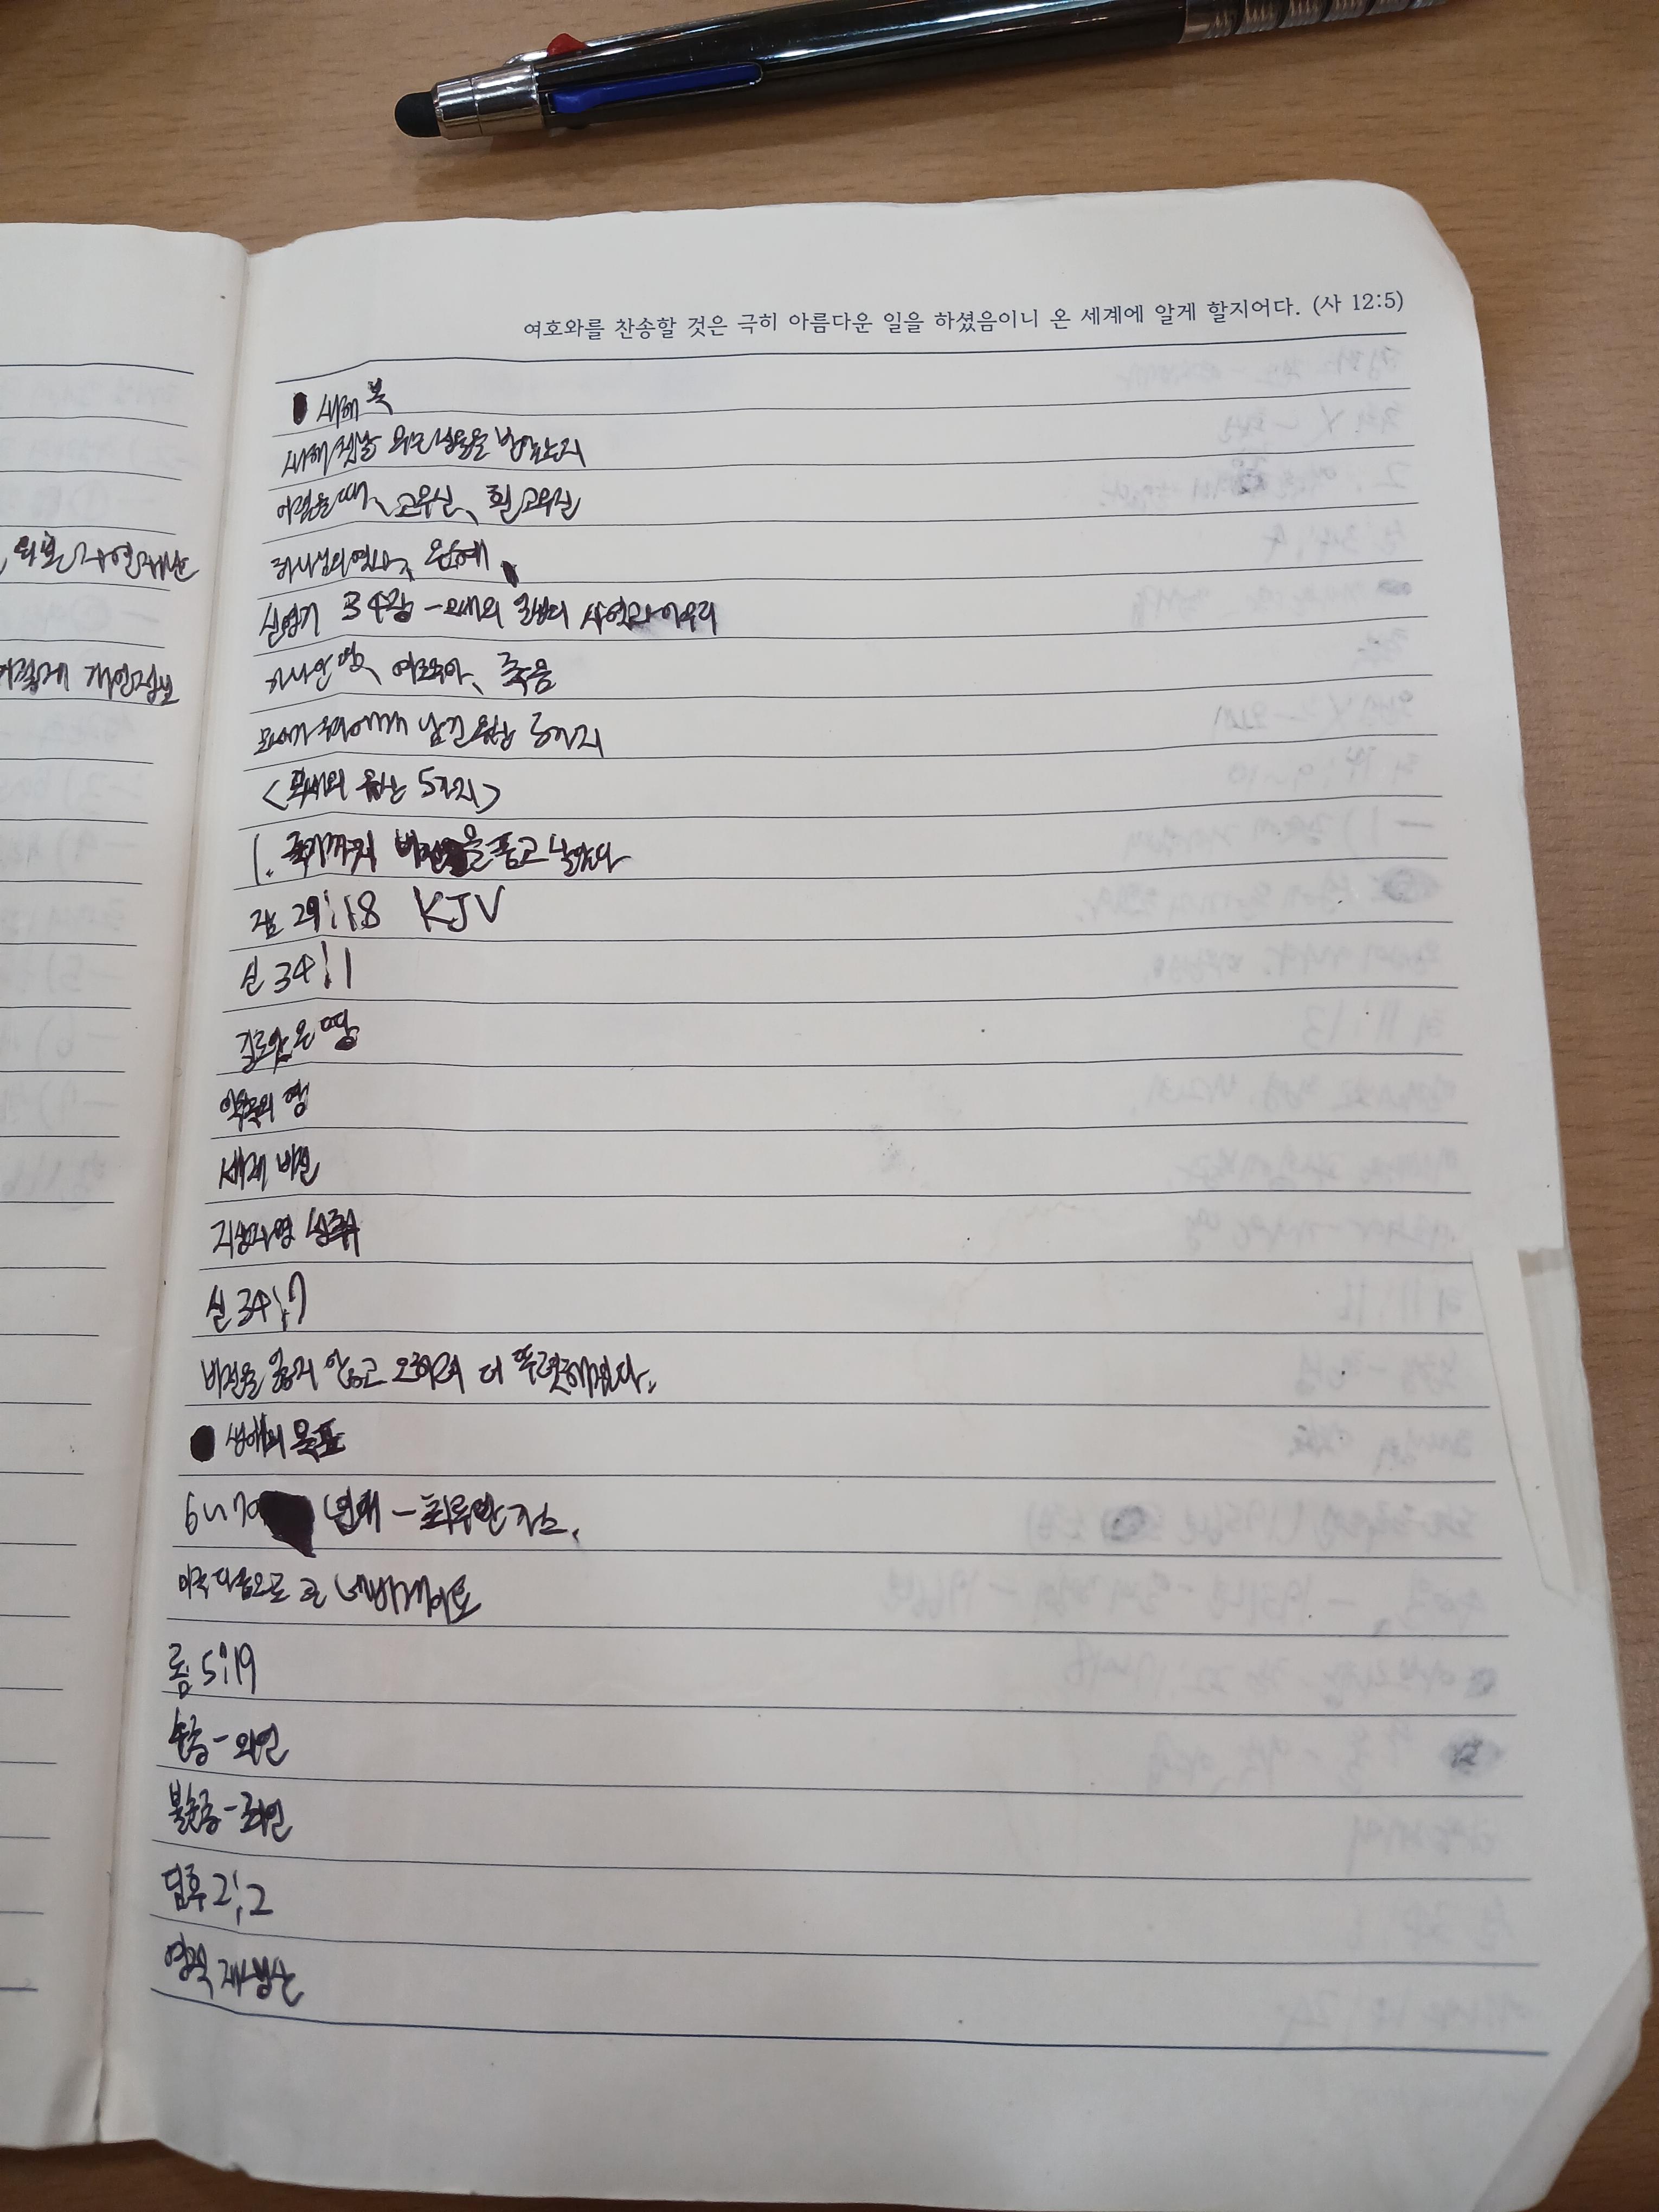 여호와를 찬송할 것은 극히 아름다운 일을 하셨음이니 온 세계에 알게 할지어다. (사 12:5)
새해 복
새해 첫날 무슨 복을 받았는지
어렸을 때, 고무신, 흰 고무신
하나님의 역사, 은혜
신명기 34장 - 모세의 일생의 사역과 마무리
가나안 땅, 여호수아, 죽음
모세가 우리에게 남긴 유산 5가지
<모세의 유산 5가지>
1. 죽기까지 비전을 품고 살았다
잠 29:18 KJV
신 34:1
길르앗 온 땅
약속의 땅
세계 비전
지상사명 성취
신 34:7
비전을 잃지 않고 오히려 더 뚜렷해졌다.
생애의 목표
6~70 년대 -
미국 다음으로 큰
롬 5:19
순종 - 의인
불순종 - 죄인
딤후 2:2
영적 재생산
어떻게 개인정보